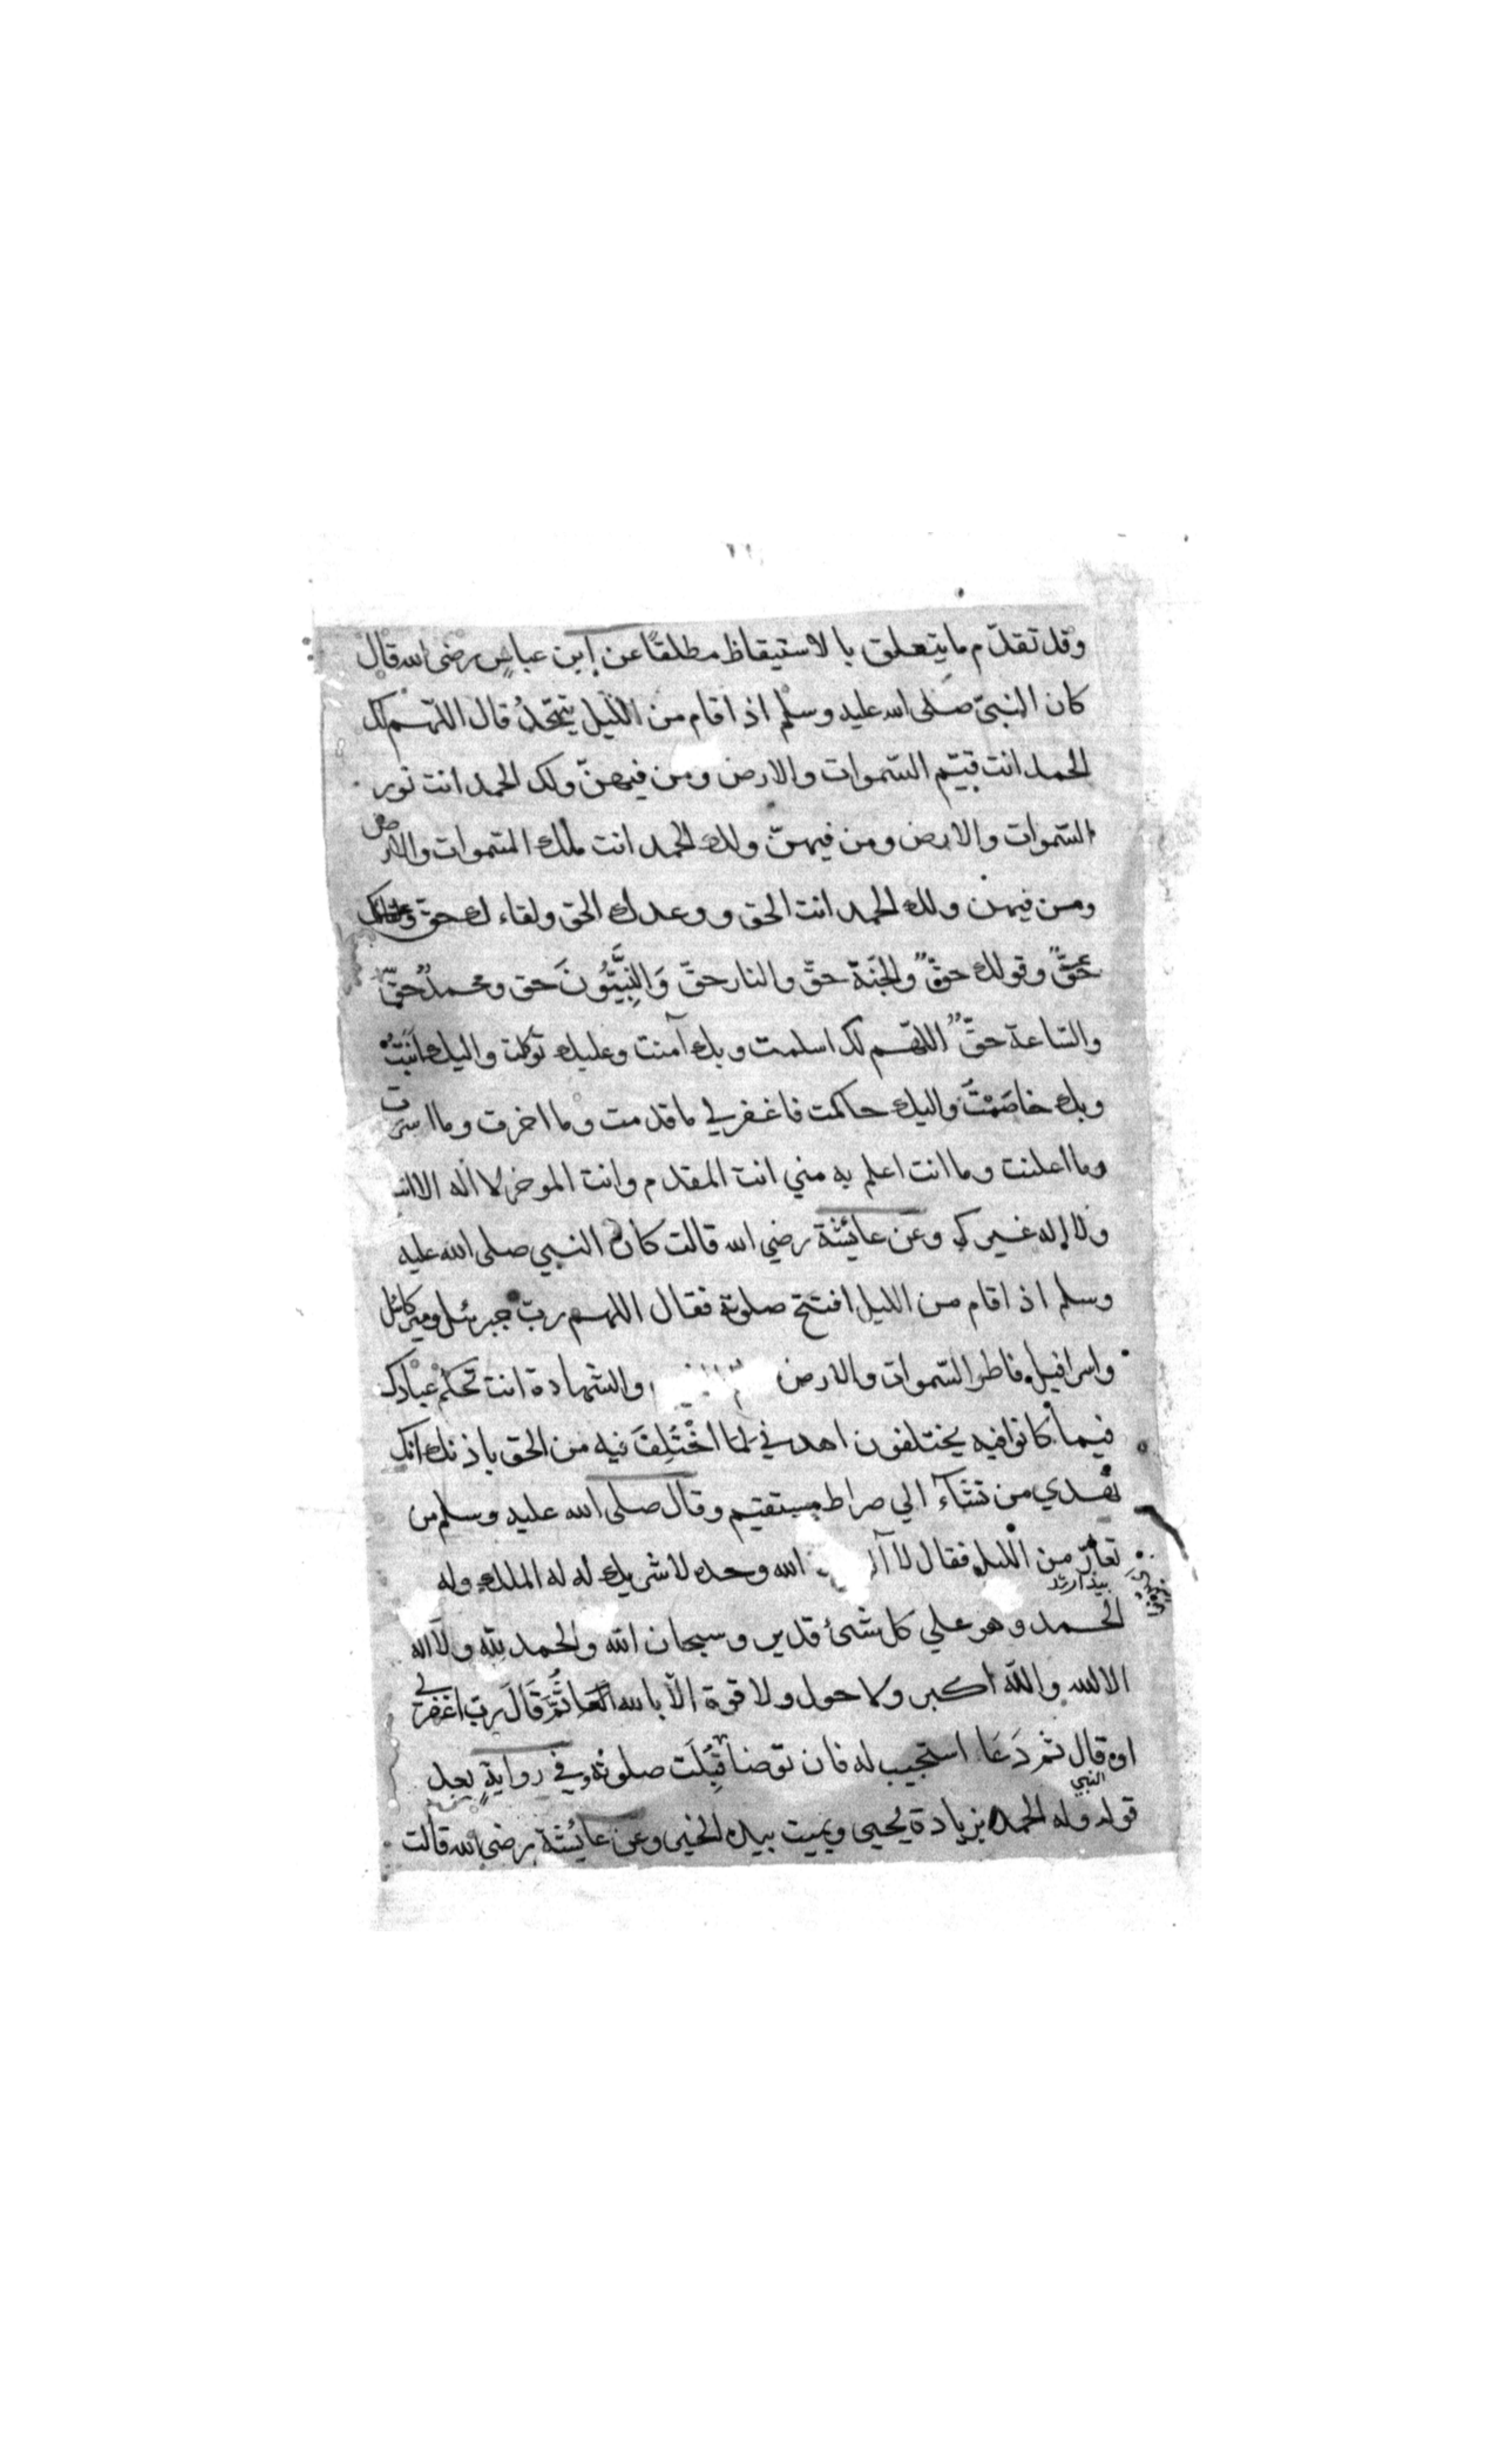 وقد تقدّم ما يتعلق بالاستيقاظ مطلقًا عن إبن عباسٍ رضى الله قال
كان النبىّ صلى الله عليه وسلم اذا قام من الليل يتهجّدُ قال اللهّم لك
الحمد انت قيّم السّموات والارض ومن فيهنّ ولك الحمد انت نور
السّموات والارض ومن فيهنّ ولك الحمد انت ملك السّموات والارض
ومن فيهن ولك الحمد انت الحق ووعدك الحق ولقاءك حق
حقٌّ وقولك حقٌّ والجَنّة حقّ والنار حقّ وَالنَّبِيُّونَ حق ومحمدٌ حقّ
والسّاعة حقٌّ اللهّم لك اسلمت وبك آمنت وعليك توكلت واليك انَبْتُ
وبك خاصَمْتُ واليك حاكمت فاغفر لي ما قدمت وما اخرت وما اسررت
وما اعلنت وما انت اعلم به مني انت المقدم وانت الموخر لا اله الا انت
ولا إله غيرك وعن عائشة رضي الله قالت كان النبي صلى الله عليه
وسلم اذا قام من الليل افتتح صلوته فقال اللهم ربّ جبرئيل وميكائيل
واسرافيل فاطر السّموات والارض والشهادة انت تحكم عبادك
فيما كانوا فيه يختلفون اهدني لمَا اخْتُلِفَ فيه من الحق باذنك انك
تهدي من تشآء الي صراط مستقيم وقال صلى الله عليه وسلم من
تعارّ من الليل فقال لا الله وحده لا شريك له له الملك وله
بيدار شد
الحمد وهو علي كل شئ قدير وسبحان الله والحمد لله ولا اله
الا الله والله اكبر ولا حول ولا قوة الّا بالله ثُمَّ قَالَ ربّ اغفر لي
او قال ثم دَعَا استجيب له فان توضا قُبِلَت صلوته وفي روايةٍ بعد
النبي
قوله وله الحمد بزيادة يحيى ويميت بيده الخير وعن عائشة رضي الله قالت